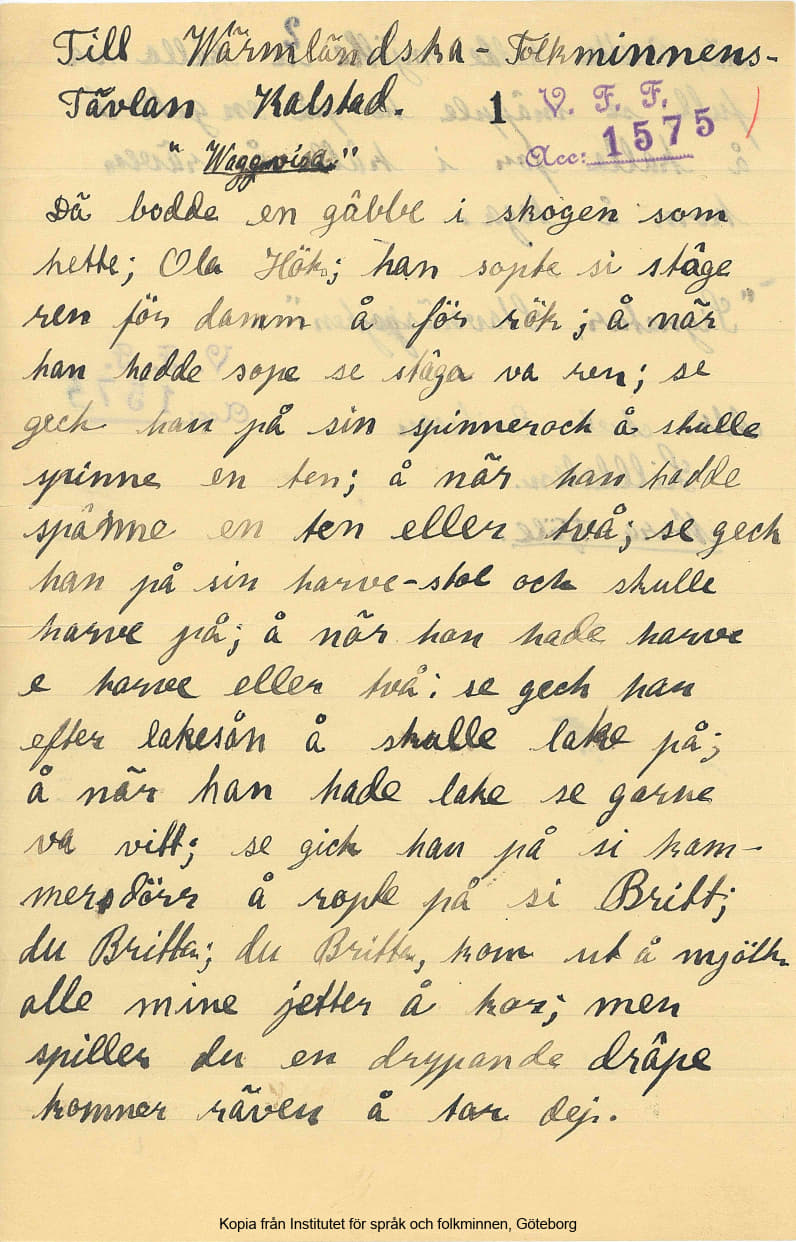 Till Wärmländska - Folkminnens-
Tävlan Kalstad. 1 V. F. F.
Acc: 1575
"Waggvisa."
Dä bodde en gäbbe i skogen som
hette; Ola Hök; han sopte si stäge
ren för damm å för rök; å när
han hadde sope se stäga va ren; se
geck han på sin spinnerock å skulle
spinne en ten; å när han hadde
spänne en ten eller två; se geck
han på sin harve-stol och skulle
harve på; å när han hade harve
e harve eller två; se geck han
efter lakesån å skulle lake på;
å när han hade lake se garne
va vitt; se gick han på si kam-
mersdörr å ropte på si Britt;
du Britta; du Britta, kom ut å mjölk
alle mine jetter å kor; men
spiller du en drypande dräpe
kommer räven å tar dej.
Kopia från Institutet för språk och folkminnen, Göteborg